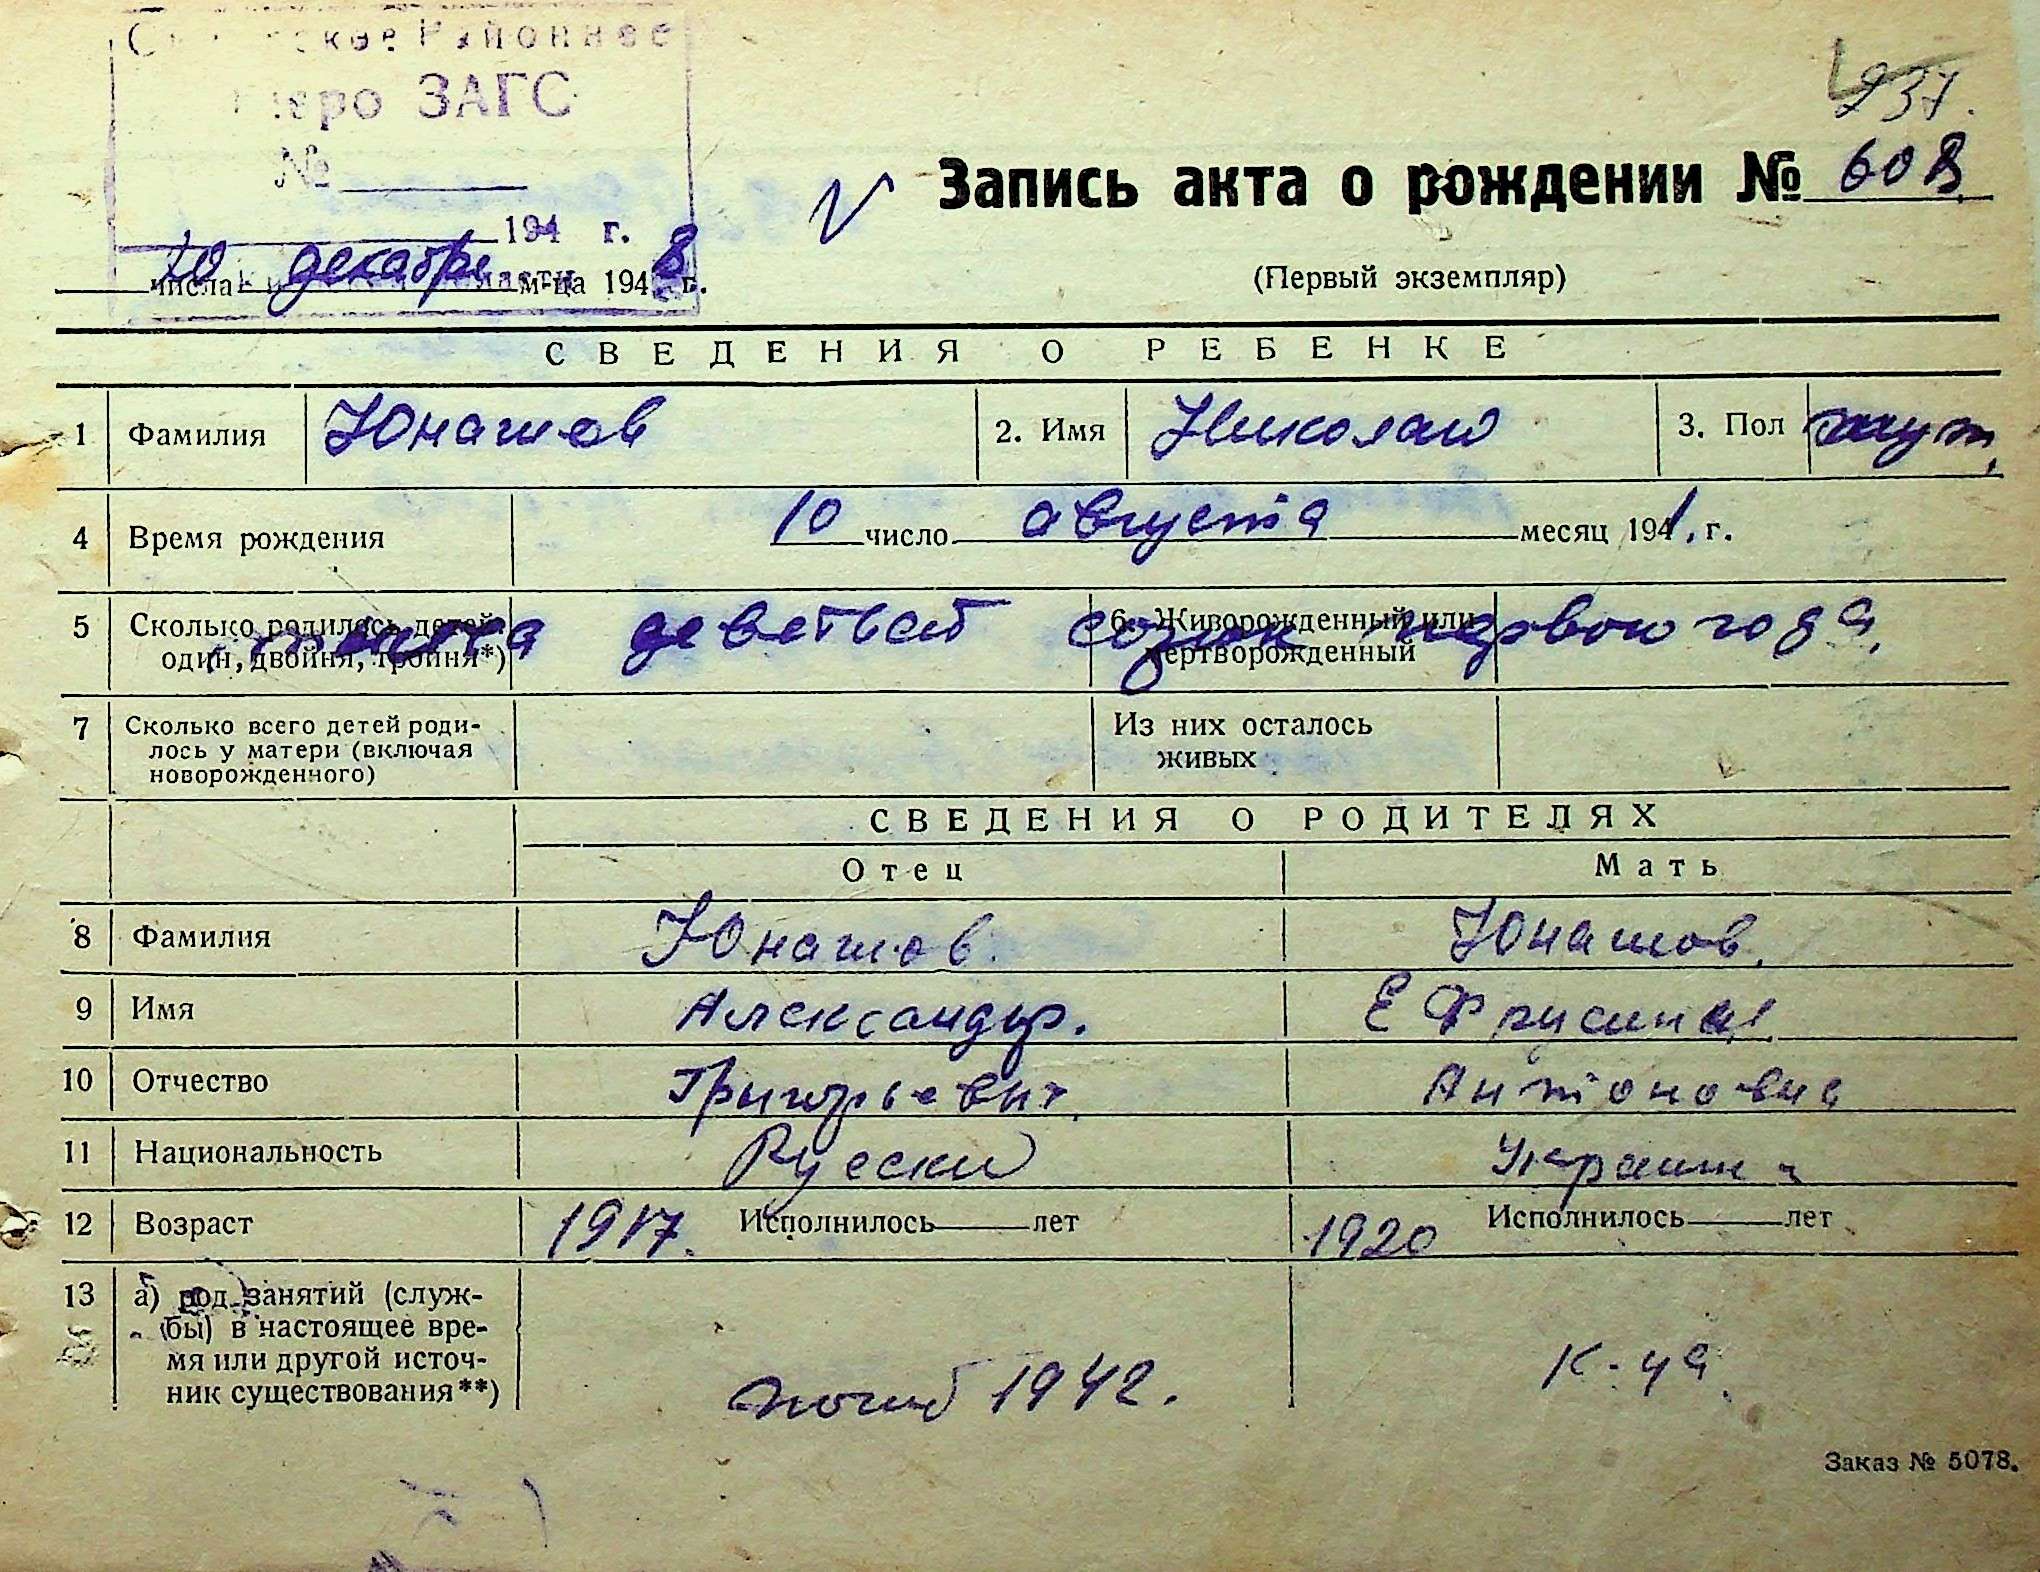 Районное
Бюро ЗАГС
№
194 г.
237.
Запись акта о рождении № 608
10 числа декабря м-ца 1948 г.
(Первый экземпляр)
СВЕДЕНИЯ О РЕБЕНКЕ
1 Фамилия Юнашов 2. Имя Николаю 3. Пол муж.
4 Время рождения 10 число августа месяц 1941. г.
5 Сколько родилось детей: один, двойня, тройня*) 6. Живорожденный или мертворожденный
тысяча деветьсот сорок первого года.
7 Сколько всего детей роди-
лось у матери (включая
новорожденного)
Из них осталось
живых
СВЕДЕНИЯ О РОДИТЕЛЯХ
Отец Мать
8 Фамилия Юнашов. Юнашов.
9 Имя Александр. Ефрусиная
10 Отчество Григорьевич. Антоновна
11 Национальность Русски Украин
12 Возраст 1917. Исполнилось лет 1920 Исполнилось лет
13 а) род занятий (служ-
бы) в настоящее вре-
мя или другой источ-
ник существования**)
погиб 1942. к-ца
Заказ № 5078.